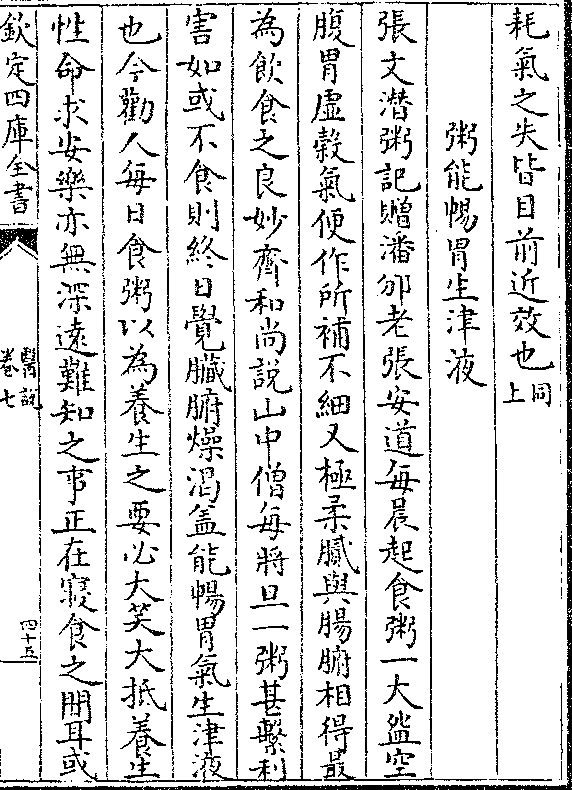 耗氣之失皆目前近效也同上
粥能暢胃生津液
張文潛粥記贈潘邠老張安道每晨起食粥一大盌空
腹胃虛穀氣便作所補不細又極柔膩與腸腑相得最
為飲食之良妙齊和尚說山中僧每將旦一粥甚繫利
害如或不食則終日覺臟腑燥渴蓋能暢胃氣生津液
也今勸人每日食粥以為養生之要必大笑大抵養生
性命求安樂亦無深遠難知之事正在寢食之間耳或
欽定四庫全書
醫說
卷七
四十五